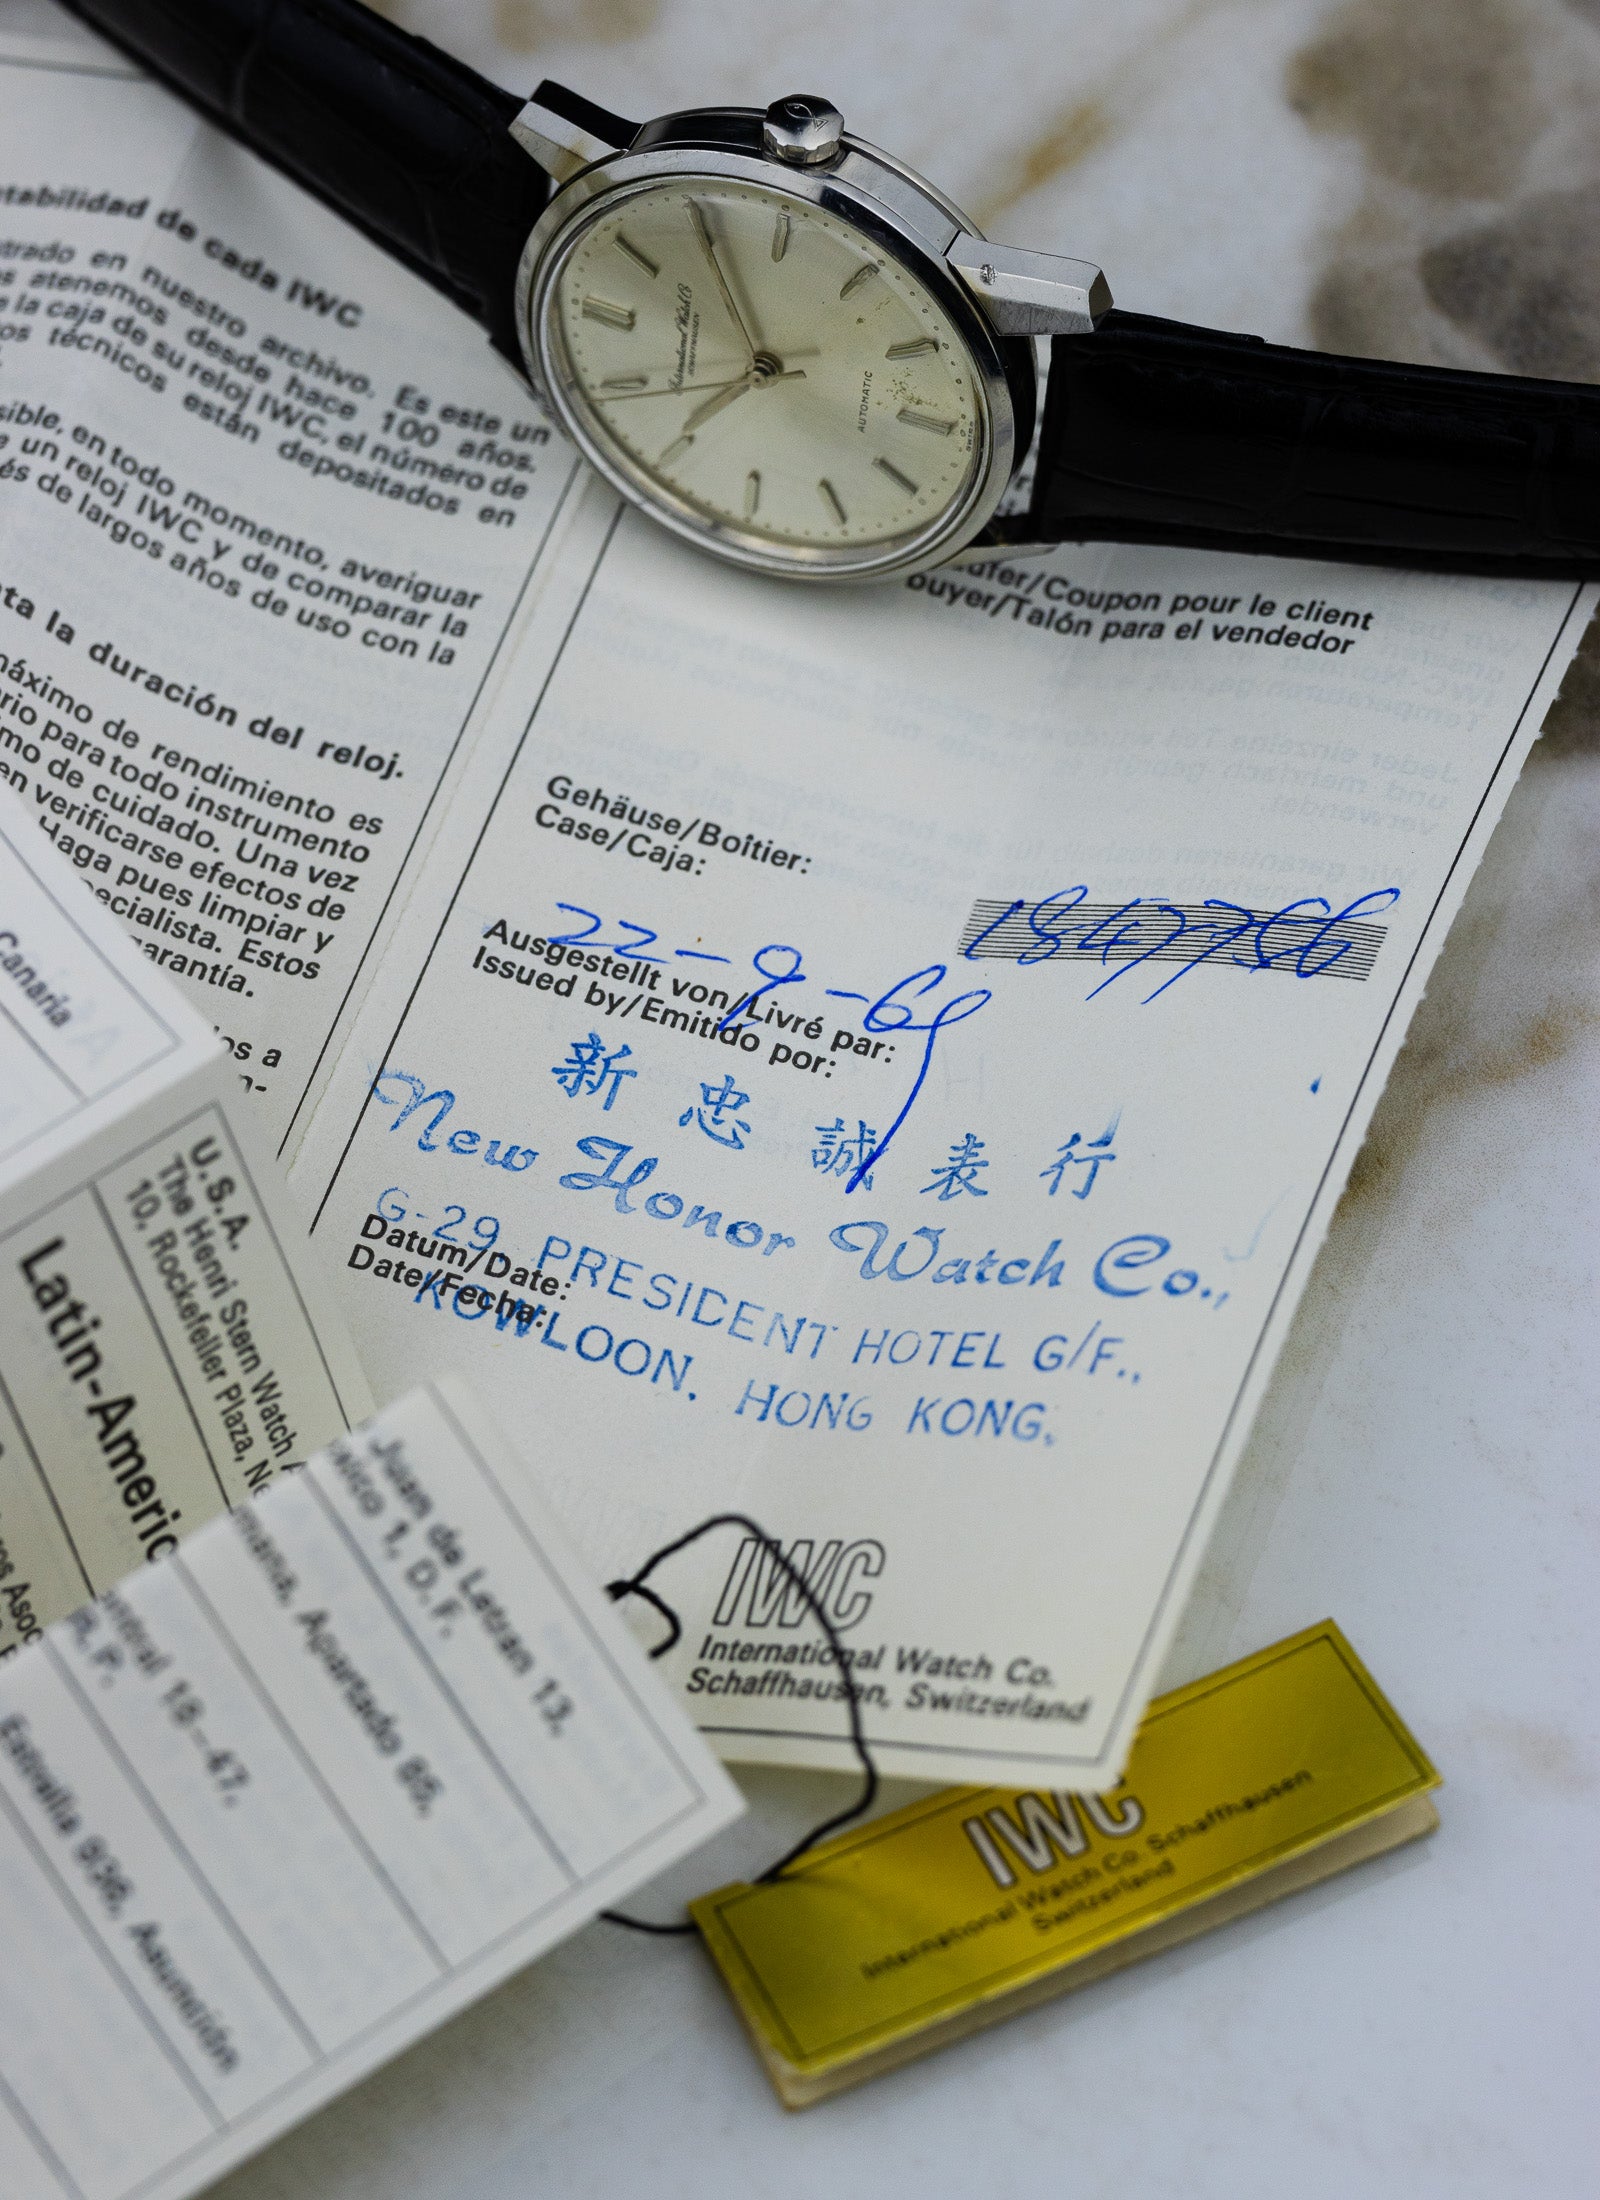 International Watch Co
SCHAFFHAUSEN
AUTOMATIC
SWISS
tabilidad de cada IWC
trado en nuestro archivo. Es este un
s atenemos desde hace 100 años.
e la caja de su reloj IWC, el número de
os técnicos están depositados en
sible, en todo momento, averiguar
e un reloj IWC y de comparar la
és de largos años de uso con la
ta la duración del reloj.
máximo de rendimiento es
rio para todo instrumento
mo de cuidado. Una vez
en verificarse efectos de
Haga pues limpiar y
pecialista. Estos
arantía.
os a
n-
äufer/Coupon pour le client
buyer/Talón para el vendedor
Gehäuse/Boîtier:
Case/Caja:
1847786
22-9-69
Ausgestellt von/Livré par:
Issued by/Emitido por:
新忠誠表行
New Honor Watch Co.,
G-29, PRESIDENT HOTEL G/F.,
KOWLOON. HONG KONG.
Datum/Date:
Date/Fecha:
IWC
International Watch Co.
Schaffhausen, Switzerland
Canaria
U.S.A.
The Henri Stern Watch A
10, Rockefeller Plaza, Ne
Latin-Americ
ros Asoc
Juan de Letran 13,
xico 1, D.F.
mana, Apartado 85,
entral 16-47,
A.P.
Estrella 936, Asunción
IWC
International Watch Co. Schaffhausen
Switzerland